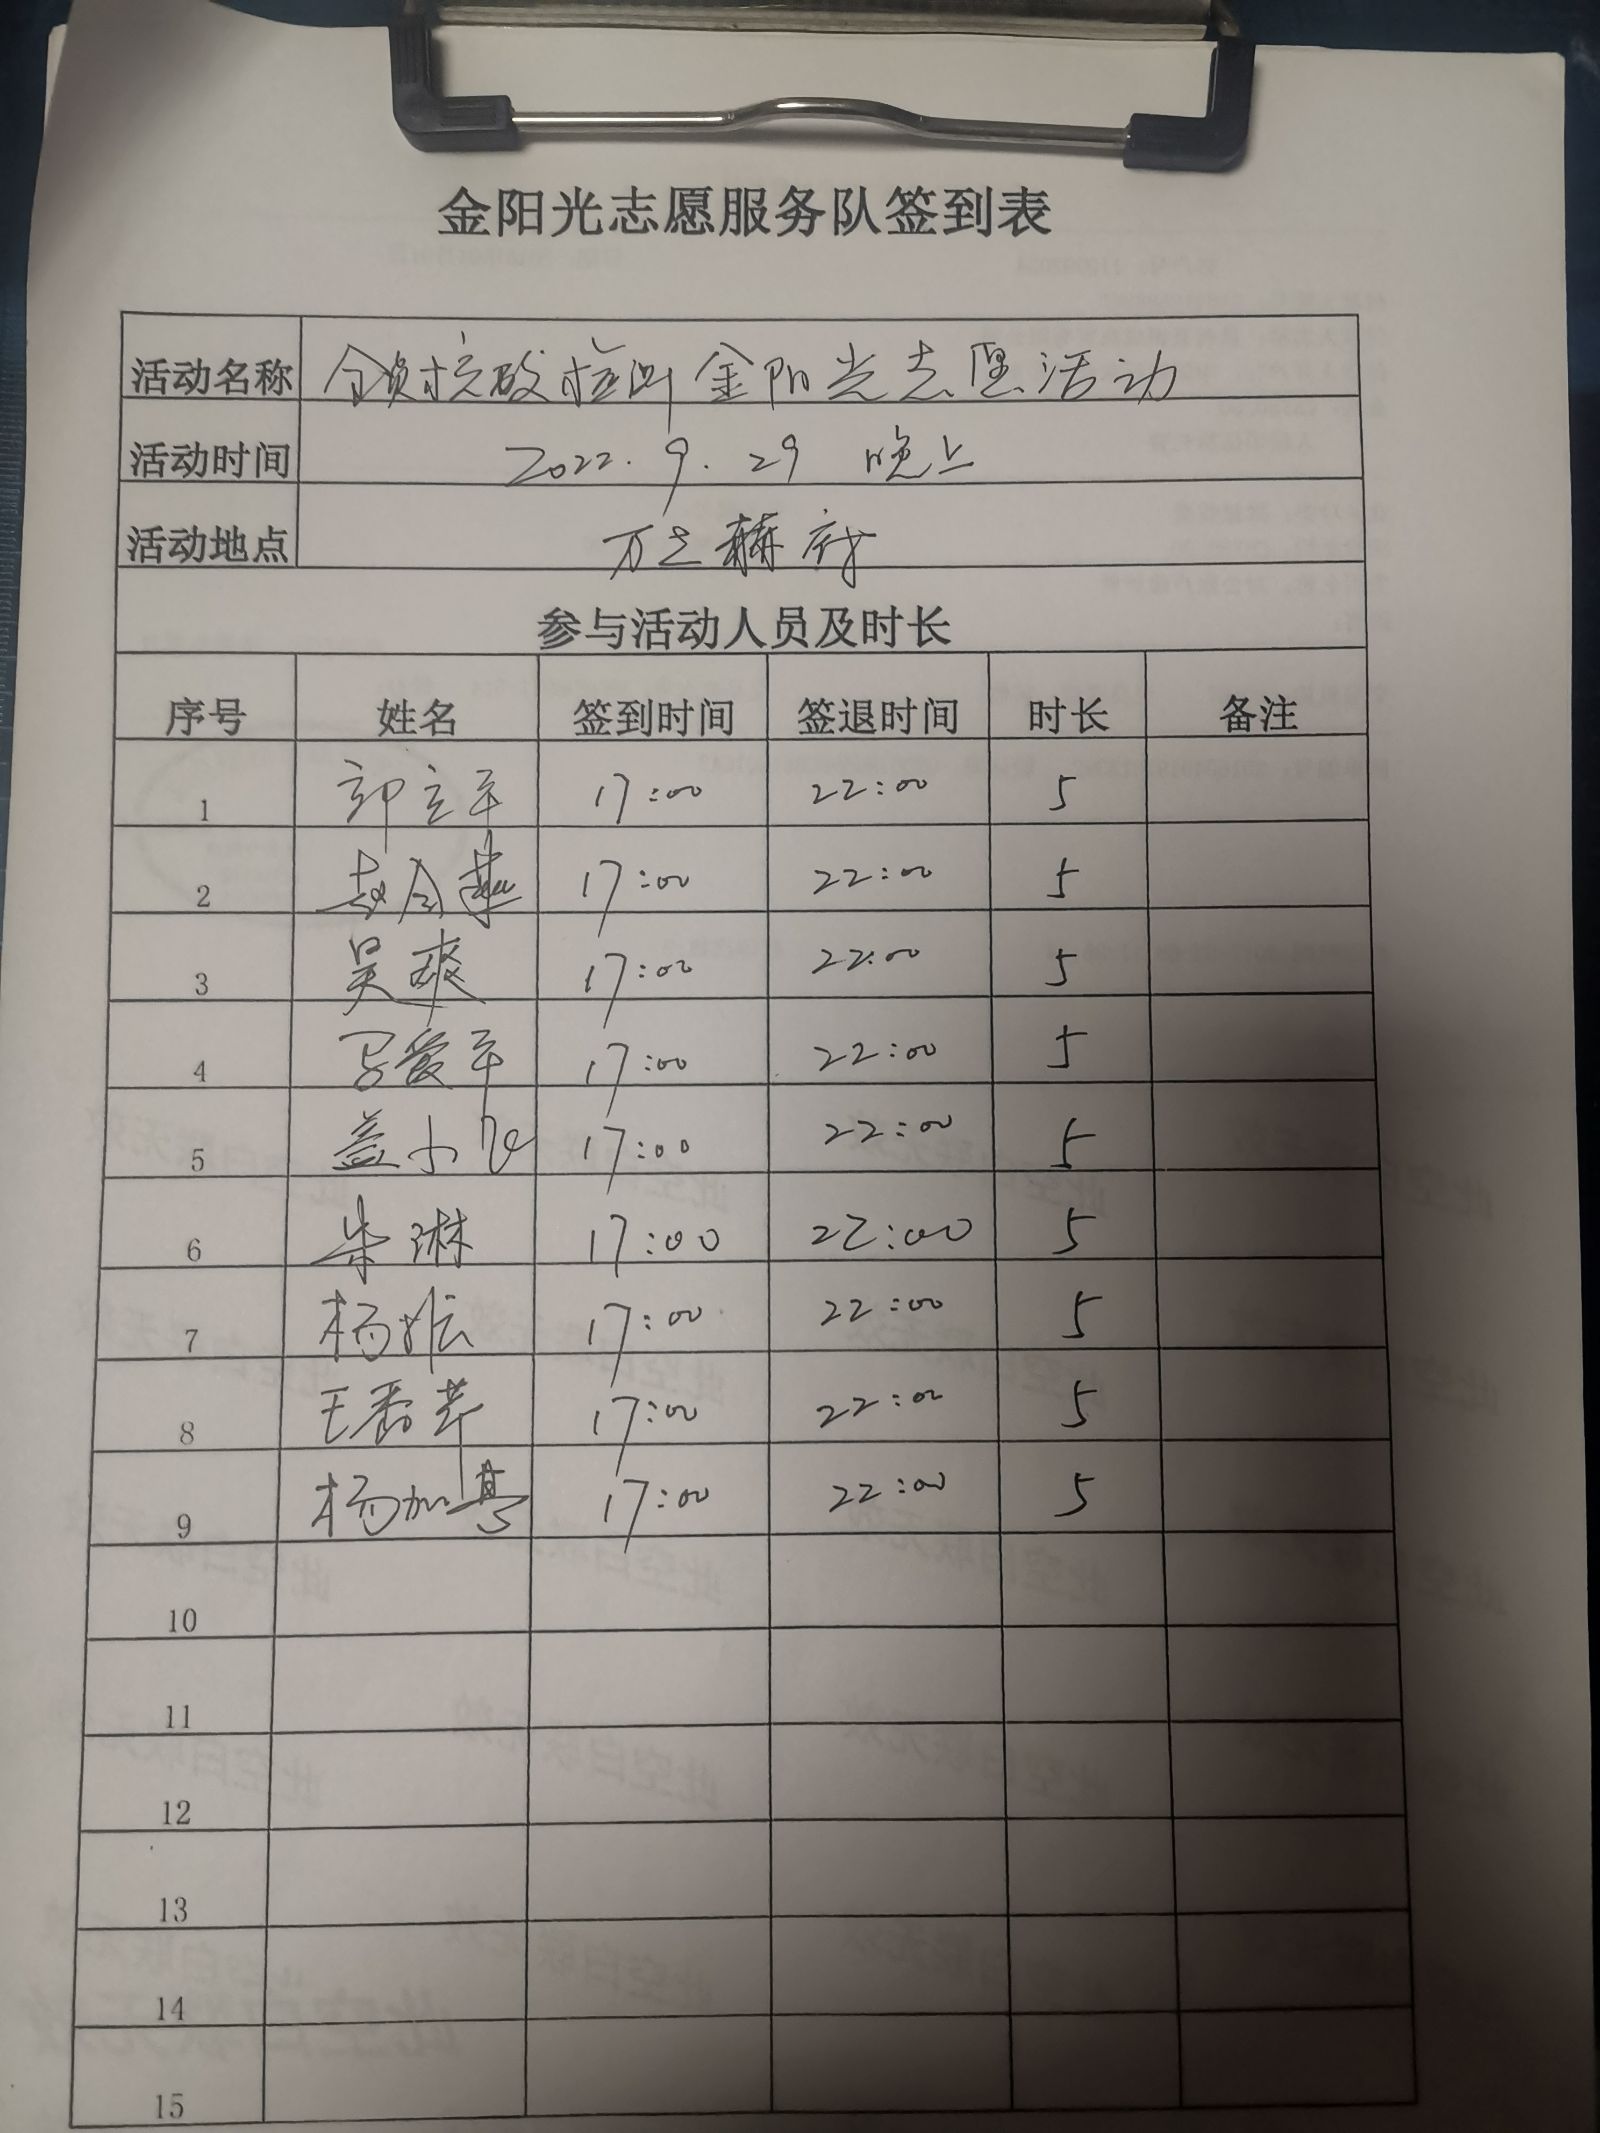 金阳光志愿服务队签到表
活动名称 全员核酸检测金阳光志愿活动
活动时间 2022.9.29 晚上
活动地点
参与活动人员及时长
序号 姓名 签到时间 签退时间 时长 备注
1 郭立平 17:00 22:00 5
2 赵令燕 17:00 22:00 5
3 吴爽 17:00 22:00 5
4 爱平 17:00 22:00 5
5 盖小飞 17:00 22:00 5
6 柴琳 17:00 22:00 5
7 杨 17:00 22:00 5
8 王香芹 17:00 22:00 5
9 杨加 17:00 22:00 5
10
11
12
13
14
15